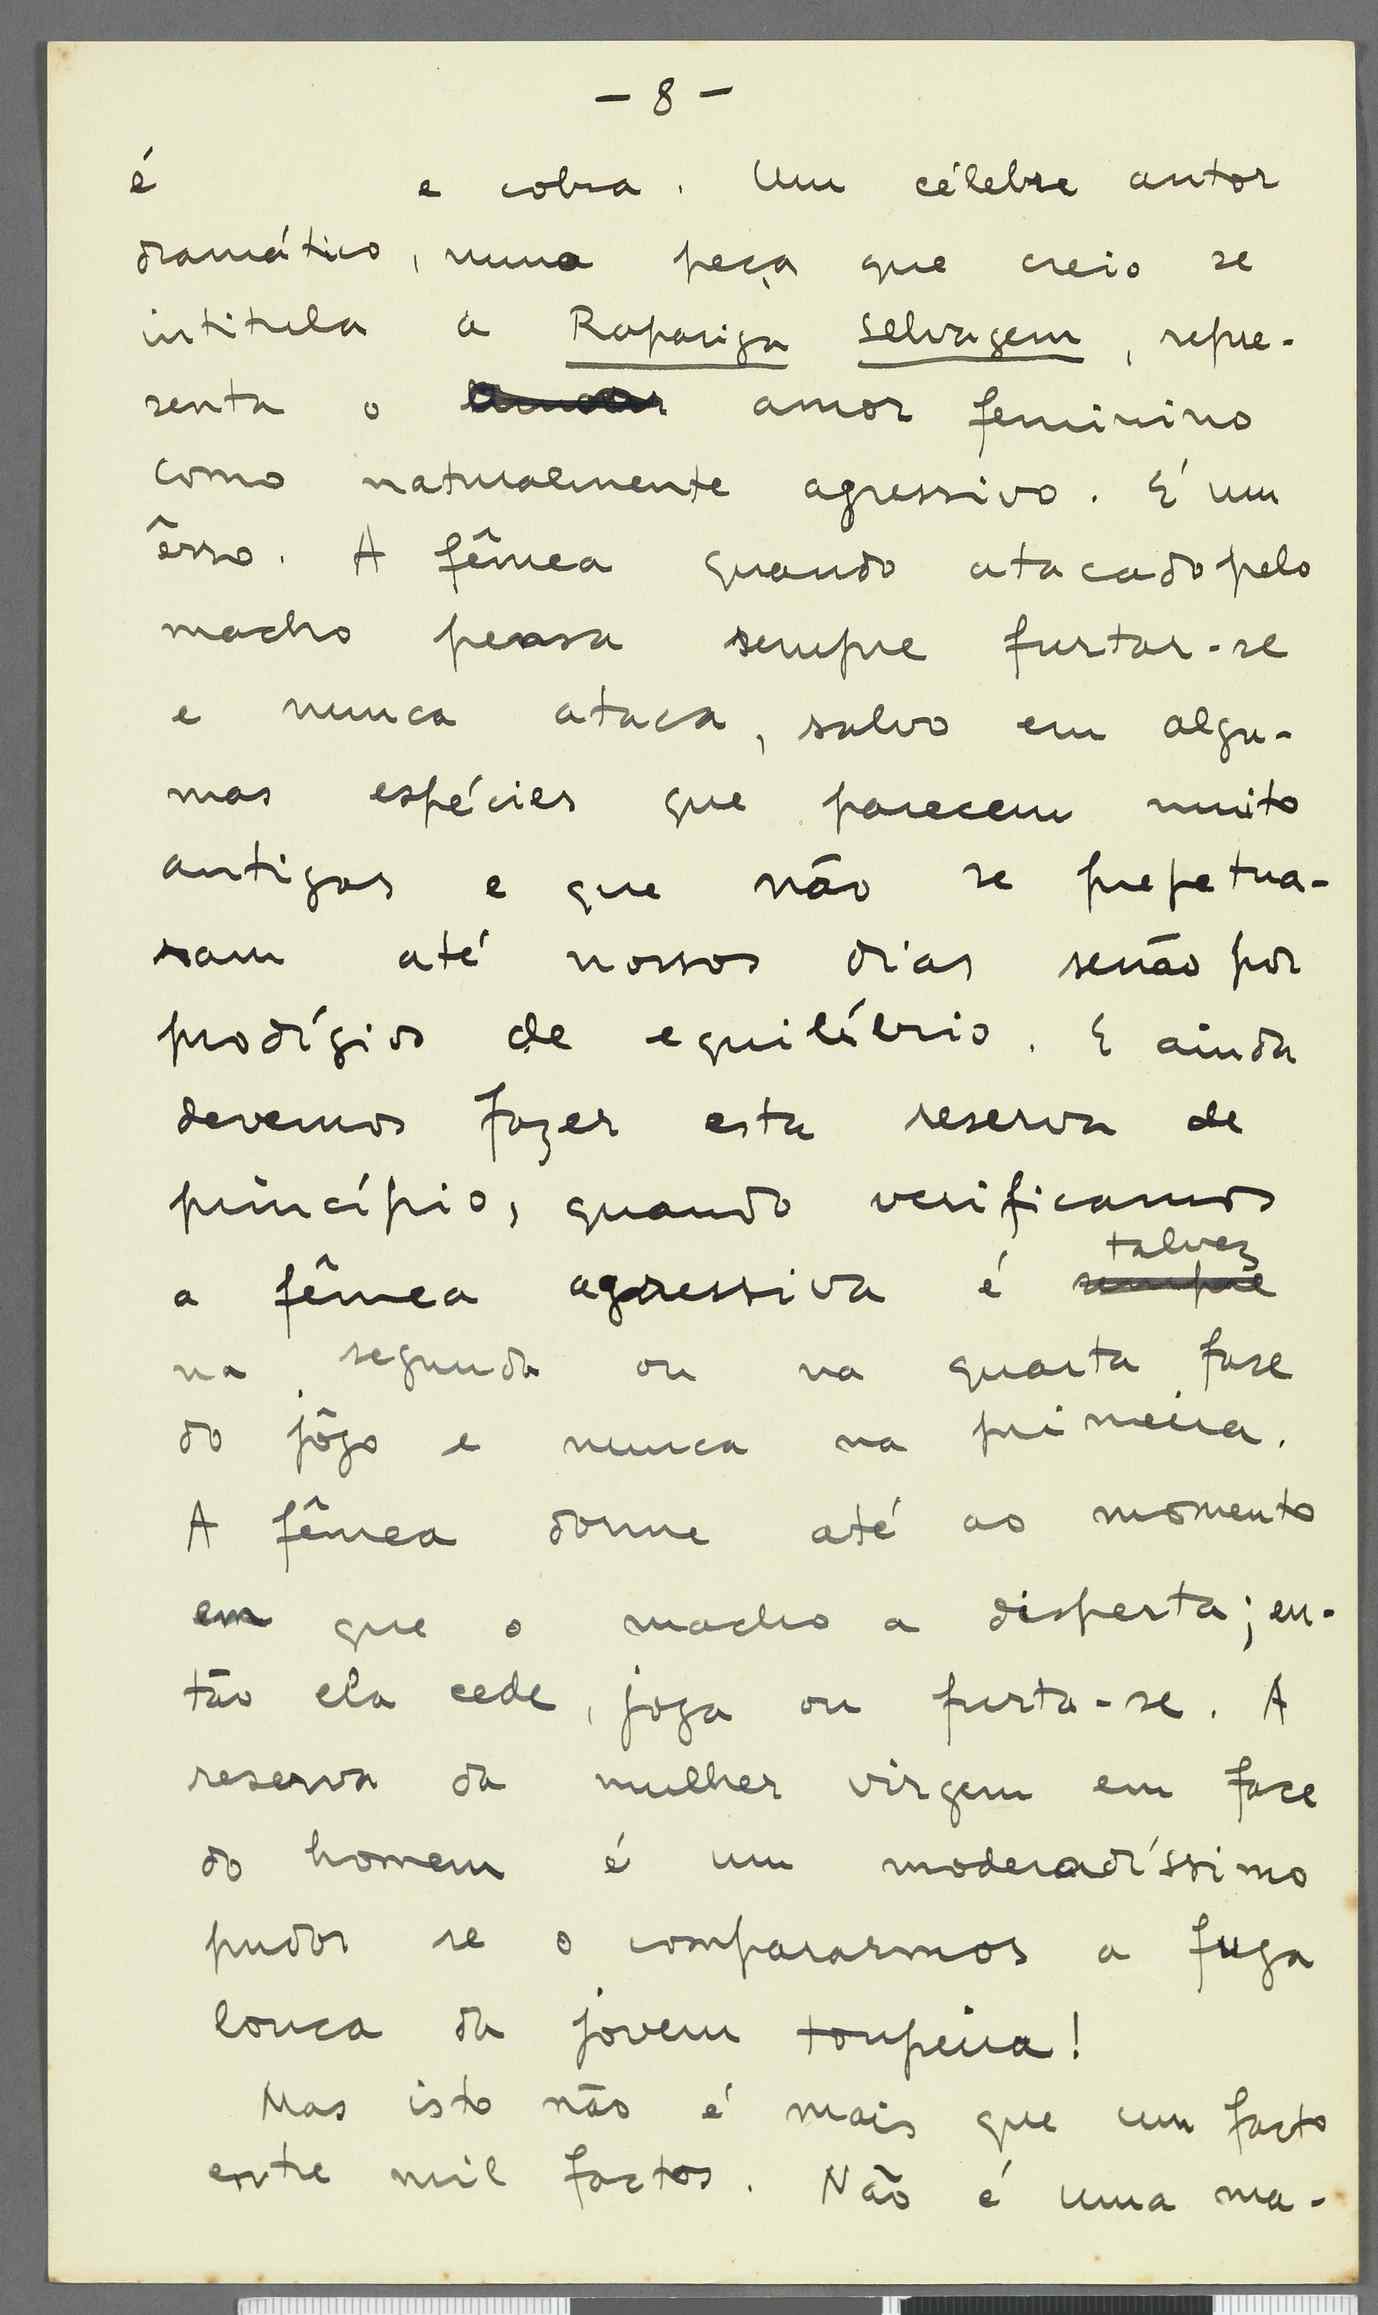 - 8 -
é e cobra. Um célebre autor
dramático, numa peça que creio se
intitula a Rapariga selvagem, repre-
senta o amor feminino
como naturalmente agressivo. É um
êrro. A fêmea quando atacado pelo
macho pensa sempre furtar-se
e nunca ataca, salvo em algu-
mas espécies que parecem muito
antigas e que não se prepetua-
ram até nossos dias senão por
prodígios de equilíbrio. E ainda
devemos fazer esta reserva de
princípio, quando verificamos
talvez
a fêmea agressiva é sempre
na segunda ou na quarta fase
do jôgo e nunca na primeira.
A fêmea dorme até ao momento
em que o macho a disperta; en-
tão ela cede, joga ou furta-se. A
reserva da mulher virgem em face
do homem é um moderadíssimo
pudor se o compararmos a fuga
louca da jovem toupeira!
Mas isto não é mais que um facto
entre mil factos. Não é uma ma-